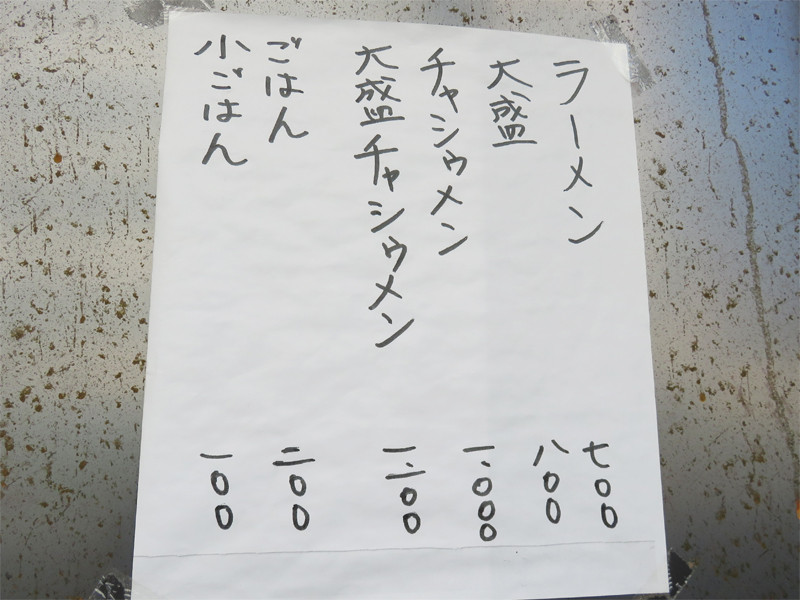 ラーメン 七〇〇
大盛 八〇〇
チャシウメン 一、〇〇〇
大盛チャシウメン 一、二〇〇
ごはん 二〇〇
小ごはん 一〇〇